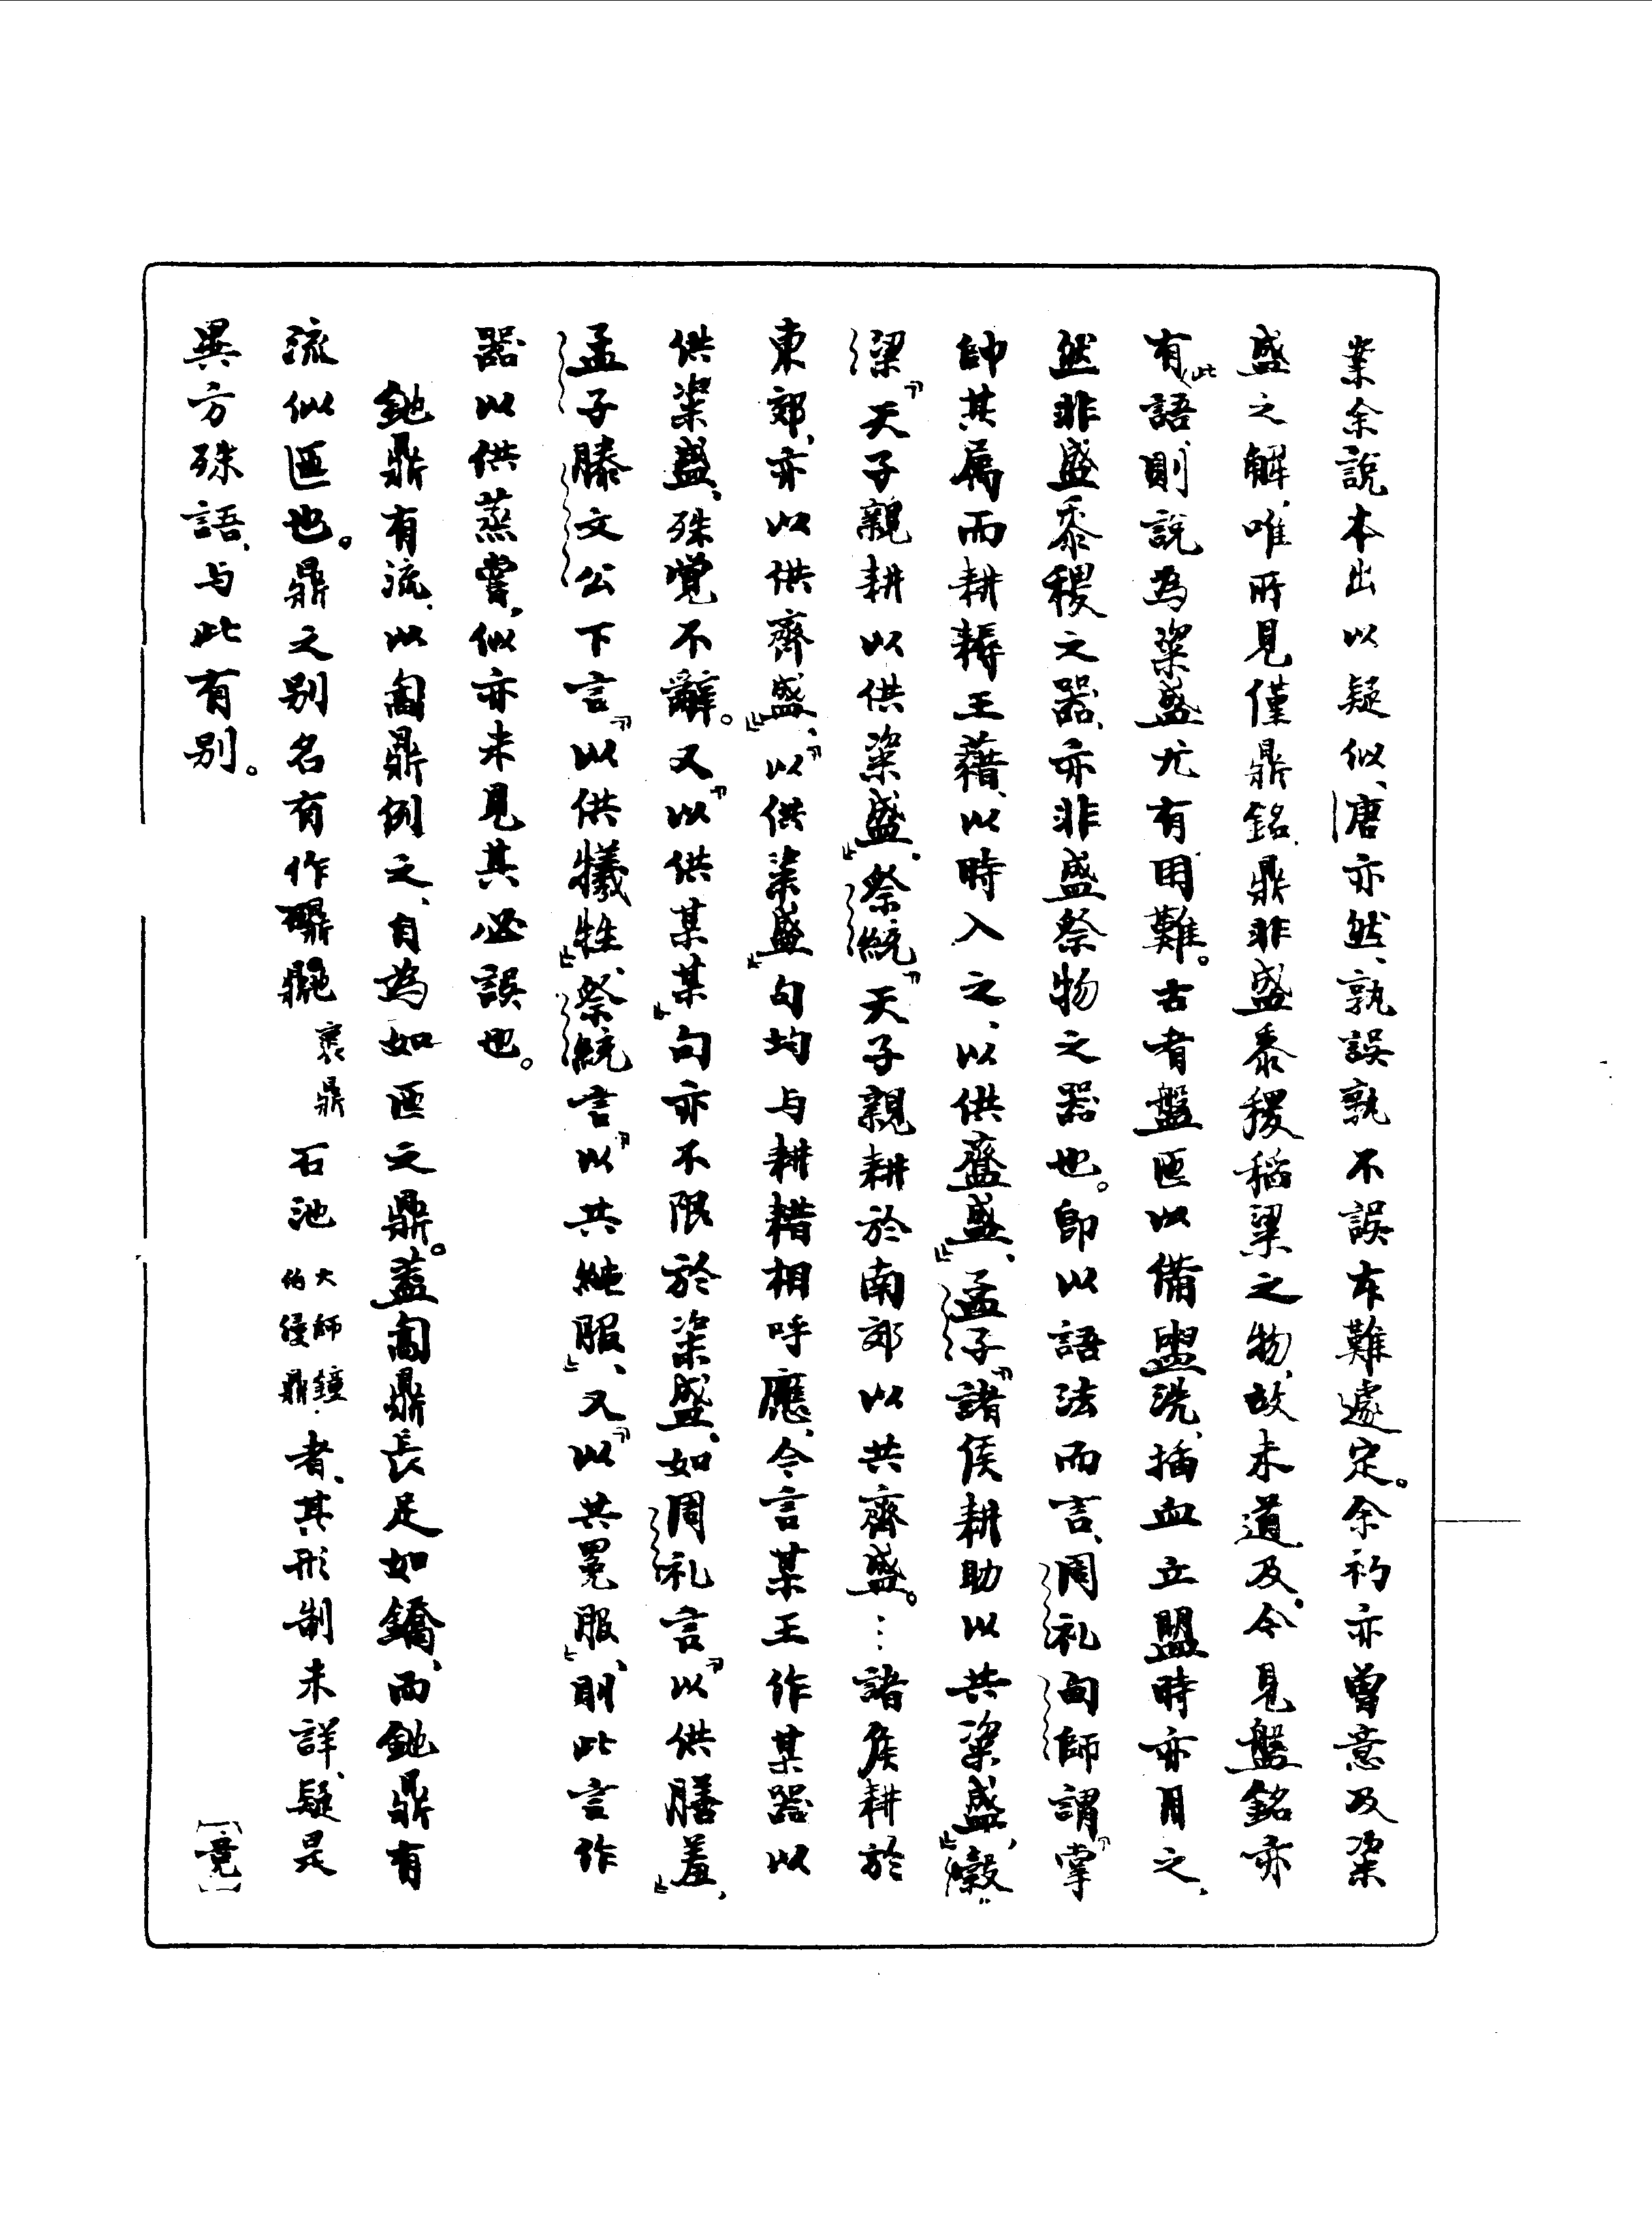 業余說本出以疑似、唐亦然、孰誤孰不誤本難遽定。余初亦曽意及粢
盛之解、唯所見僅鼎銘、鼎非盛黍稷稻粱之物、故未道及、今見盤銘亦
有此語、則說為粢盛尤有困難。古者盤匜以備盥洗、插血立盟時亦用之、
然非盛黍稷之器、亦非盛祭物之器也。即以語法而言、周礼甸師謂『掌
帥其属而耕耨王藉、以時入之、以供齍盛』、孟子『諸侯耕助以共粢盛』、穀
梁『天子親耕以供粢盛』、祭統『天子親耕於南郊以共齊盛。…諸侯耕於
東郊、亦以供齊盛』、『以供粢盛』句均与耕耤相呼應、今言某王作某器以
供粢盛、殊覺不辭。又『以供某某』句亦不限於粢盛、如周礼言『以供膳羞』、
孟子滕文公下言『以供犧牲』、祭統言『以共純服』、又『以共冕服』、則此言作
器以供蒸嘗、似亦未見其必誤也。
鉈鼎有流、以匋鼎例之、自為如匜之鼎。蓋匋鼎長足如鐈、而鉈鼎有
流似匜也。鼎之别名有作 裹鼎 石池 大師鐘伯侵鼎 者、其形制未詳、疑是
異方殊語、与此有别。
[竟]